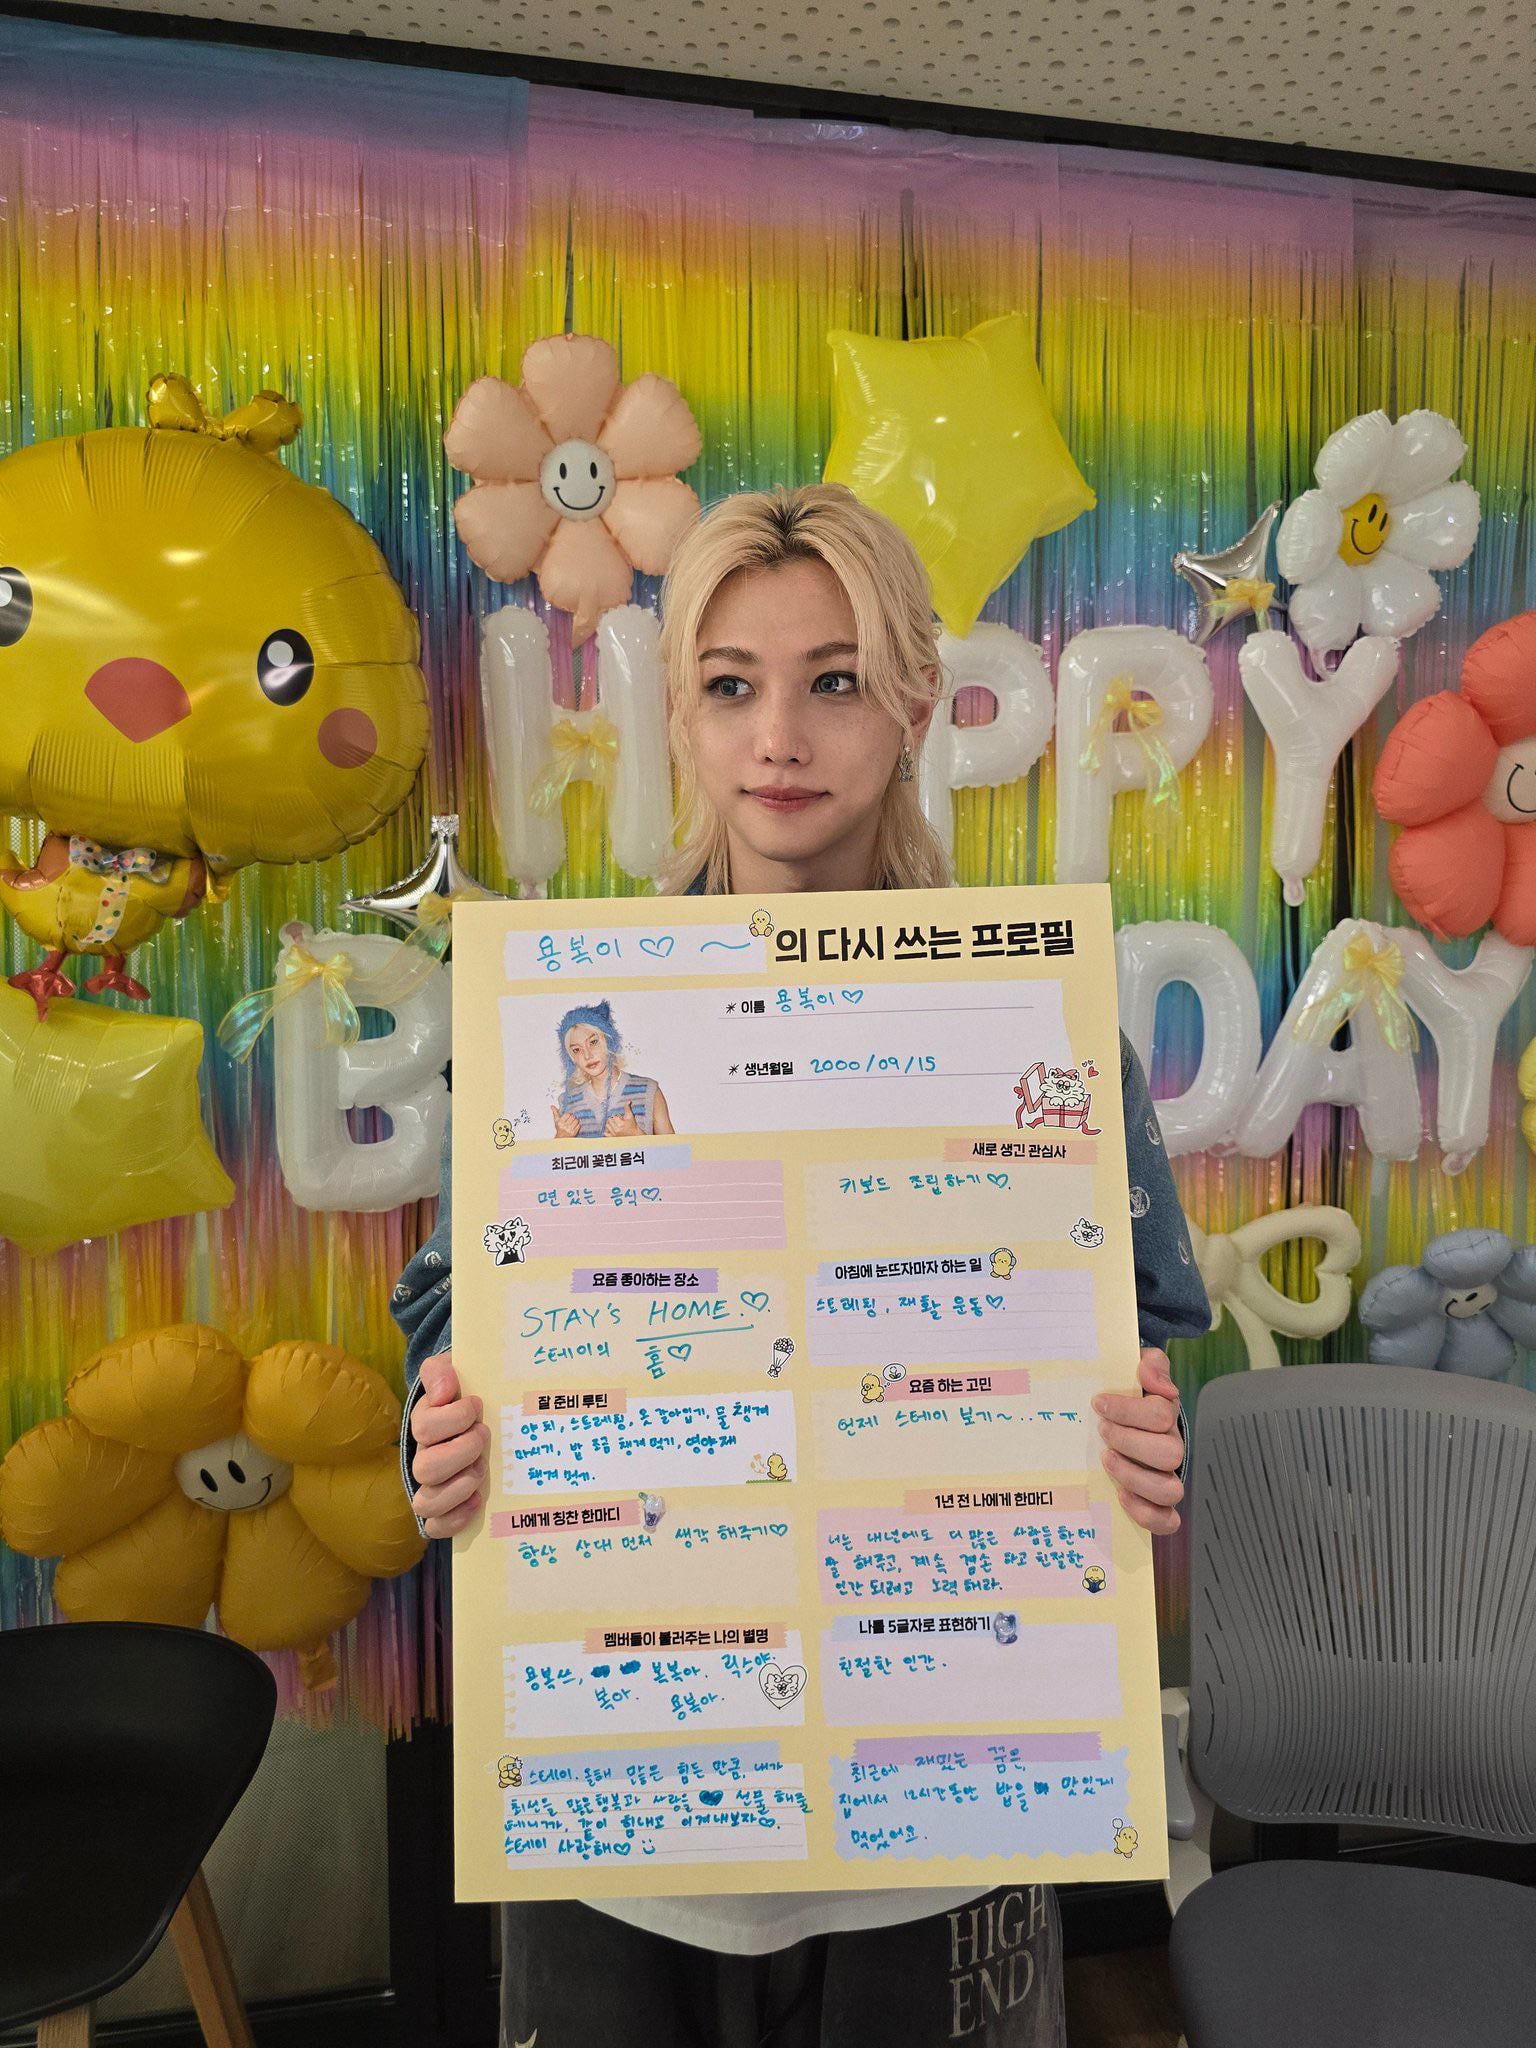 HAPPY
B DAY
용복이♡ ~ 의 다시 쓰는 프로필
* 이름 용복이♡
* 생년월일 2000/09/15
최근에 꽂힌 음식
면 있는 음식♡.
새로 생긴 관심사
키보드 조립하기♡.
요즘 좋아하는 장소
STAY's HOME.♡
스테이의 홈♡
아침에 눈뜨자마자 하는 일
스트레칭, 재활 운동♡.
잘 준비 루틴
양치, 스트레칭, 옷 갈아입기, 물 챙겨
마시기, 밥 조금 챙겨 먹기, 영양제
챙겨 먹기.
요즘 하는 고민
언제 스테이 보기~...ㅠㅠ.
나에게 칭찬 한마디
항상 상대 먼저 생각 해주기♡
1년 전 나에게 한마디
너는 내년에도 더 많은 사람들한테
잘 해주고, 계속 겸손 하고 친절한
인간 되려고 노력해라.
멤버들이 불러주는 나의 별명
용복쓰, 복복아. 릭스야.
복아. 용복아.
나를 5글자로 표현하기
친절한 인간.
스테이. 올해 많은 힘든 만큼, 내가
최선을 많은 행복과 사랑을 선물 해줄
테니까, 같이 힘내고 이겨내보자♡.
스테이 사랑해♡
최근에 재밌는 꿈은,
집에서 12시간동안 밥을 맛있게
먹었어요.
HIGH
END